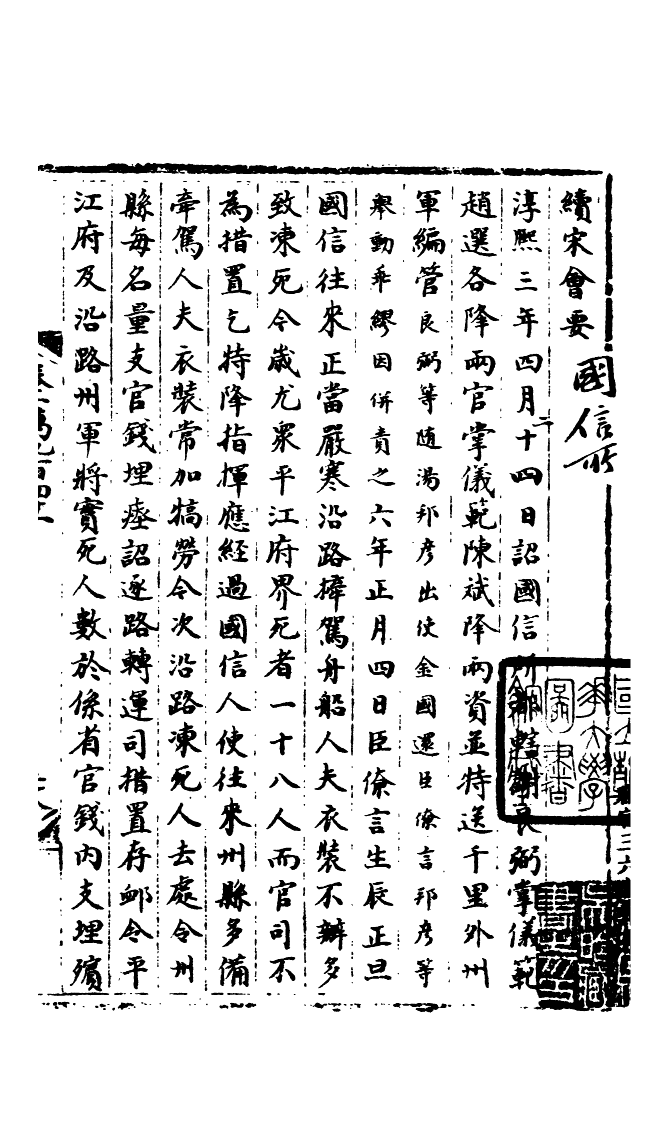 續宋會要
國信所
淳熙三年四月十四日詔國信所都轄謝良弼掌儀範
二
趙選各降兩官掌儀範陳斌降兩資並特送千里外州
軍編管良弼等隨湯邦彥出使金國還臣僚言邦彥等
舉動乖繆因併責之六年正月四日臣僚言生辰正旦
國信往來正當嚴寒沿路捧駕舟船人夫衣裝不辦多
致凍死今歲尤眾平江府界死者一十八人而官司不
為措置乞特降指揮應經過國信人使往來州縣多備
牽駕人夫衣裝常加犒勞令次沿路凍死人去處令州
縣每名量支官錢埋瘞詔逐路轉運司措置存卹令平
江府及沿路州軍將實死人數於係省官錢內支埋殯